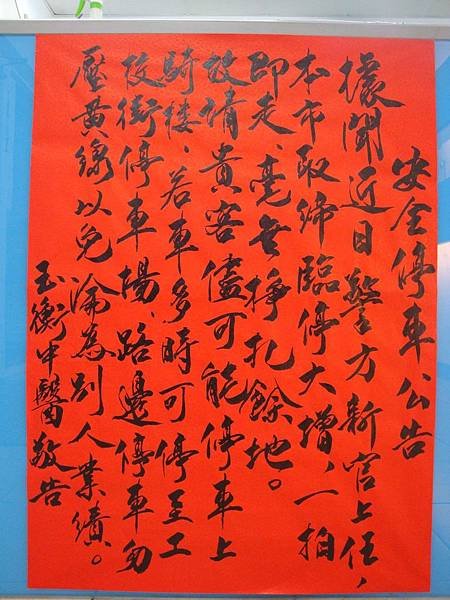 安全停車公告
據聞近日警方新官上任，
本市取締臨停大增，一拍
即走、毫无掙扎餘地。
故請貴客儘可能停車上
騎樓、若車多時可停至工
校街停車場、路邊停車勿
壓黃線以免淪為別人業績。
玉衡中醫敬告